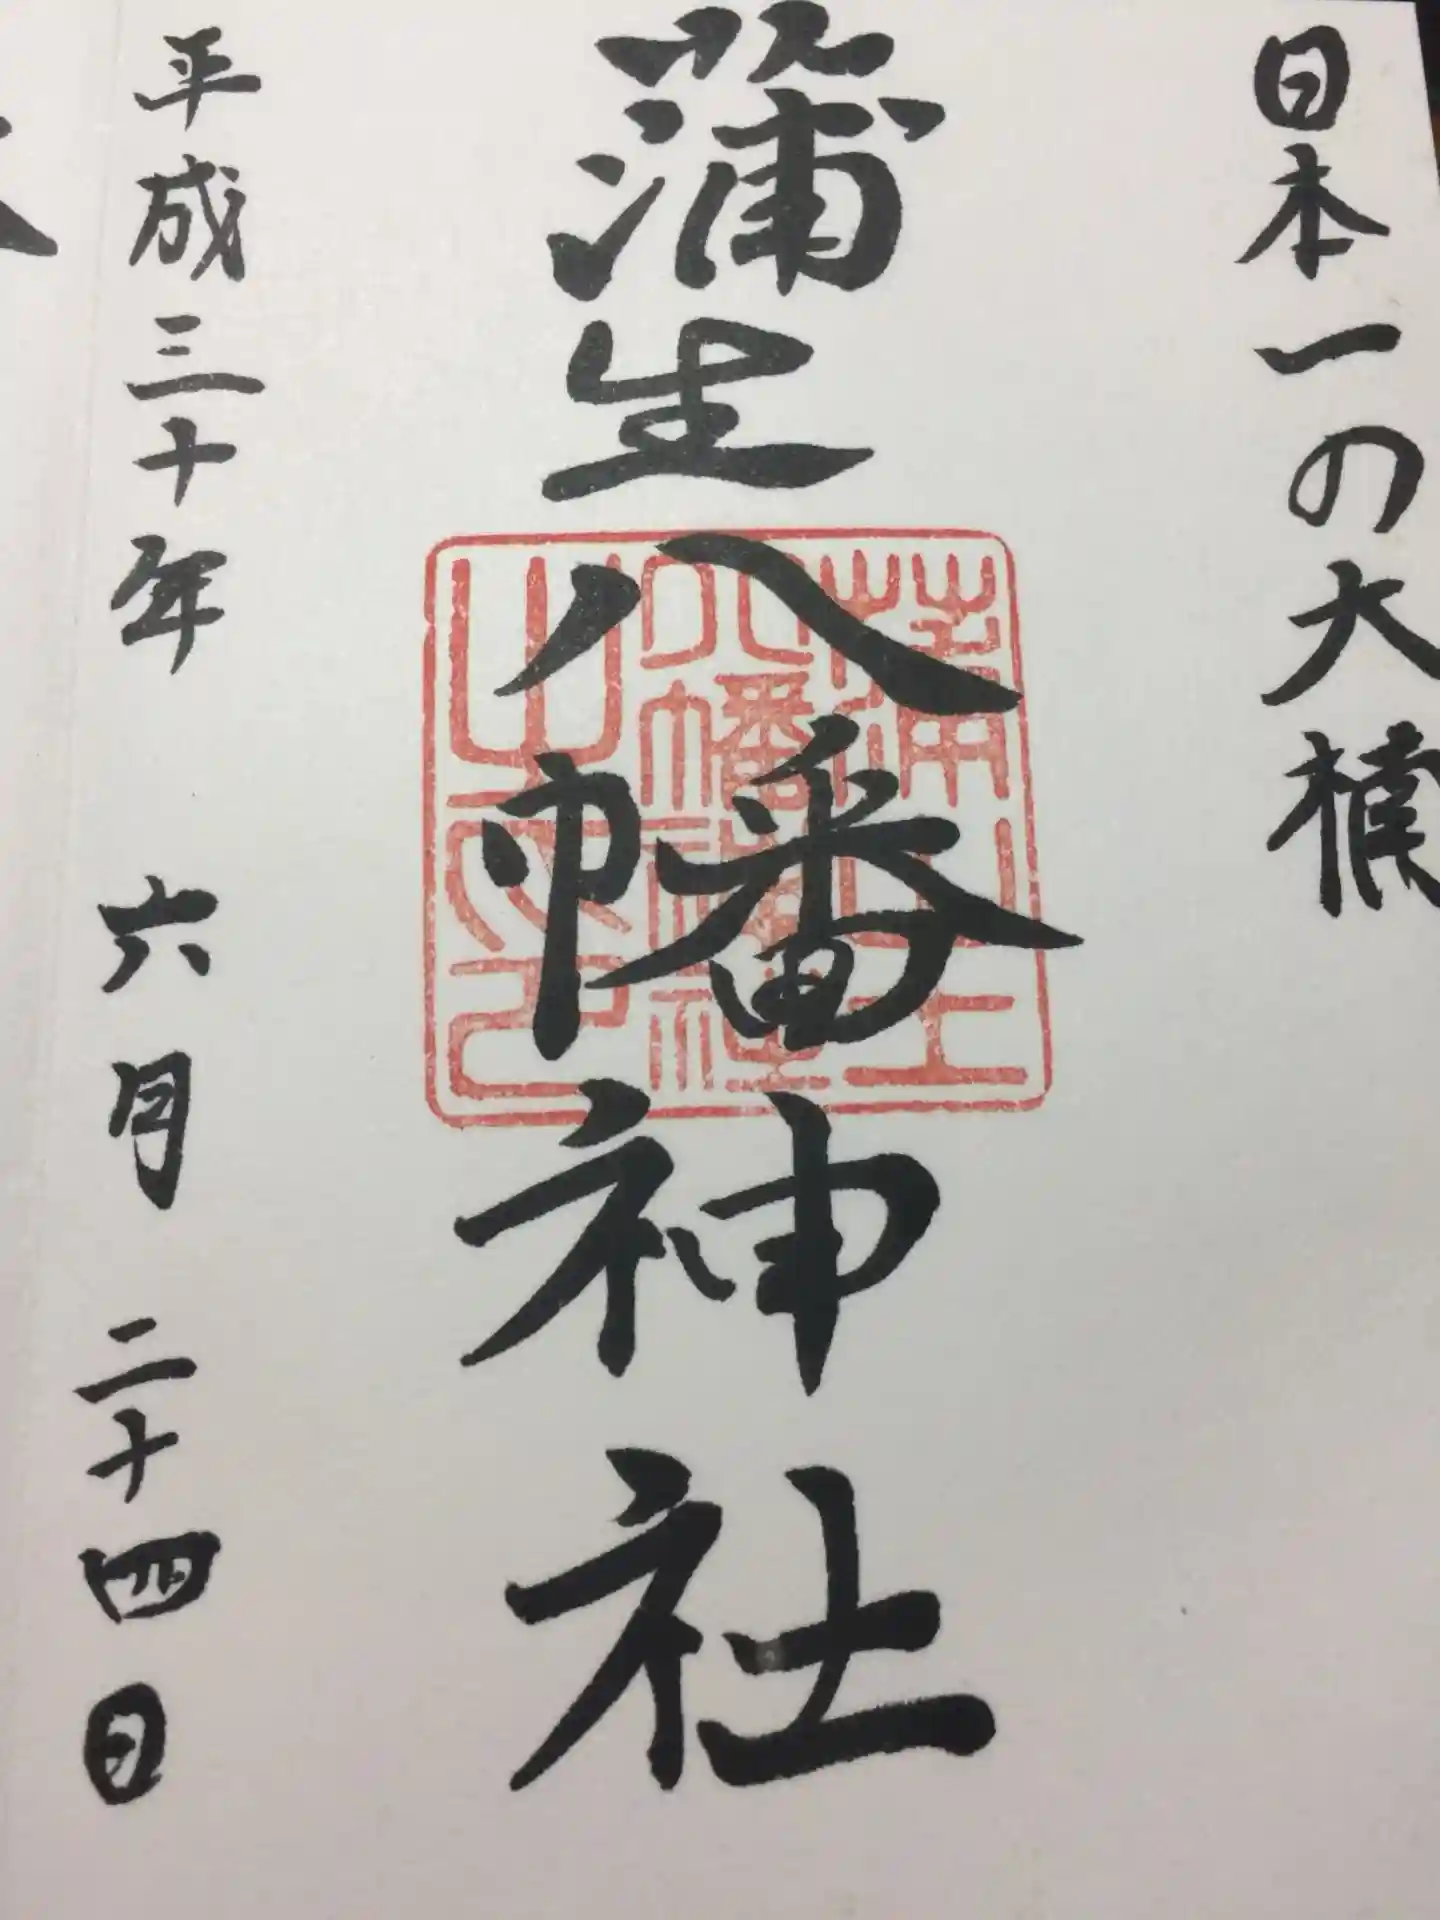 日本一の大楠
蒲生八幡神社
蒲生
八幡神社
之印
平成三十年 六月 二十四日